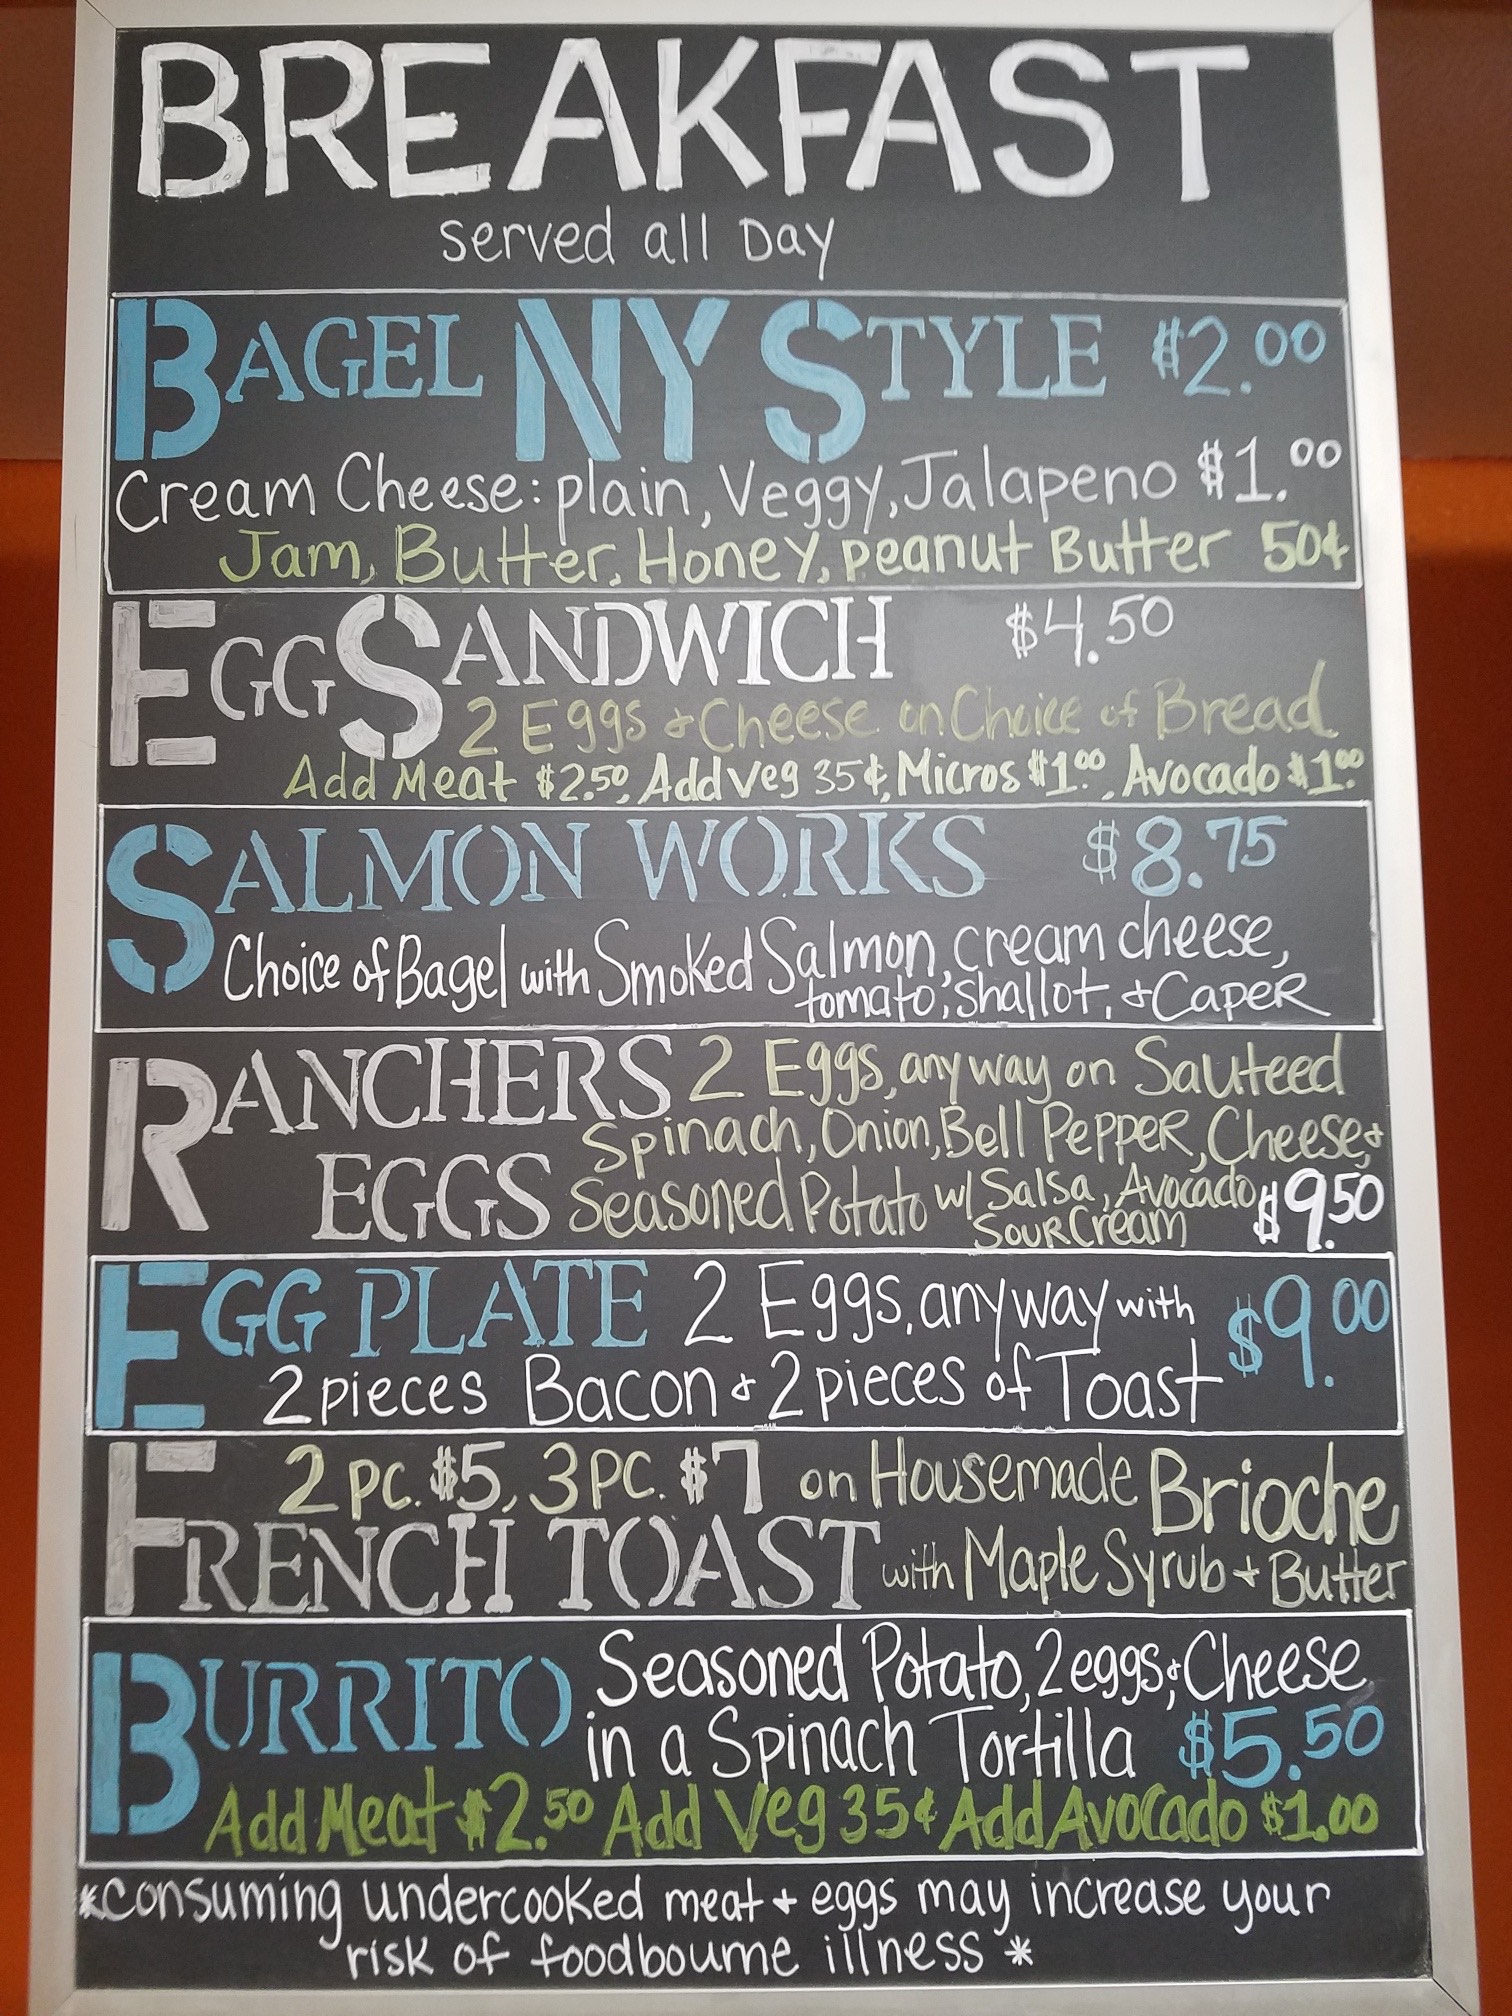 BREAKFAST
served all Day
BAGEL NY STYLE $2.00
Cream Cheese: plain, Veggy, Jalapeno $1.00
Jam, Butter, Honey, peanut Butter 50¢
EGG SANDWICH $4.50
2 Eggs & Cheese on Choice of Bread
Add Meat $2.50, Add Veg 35¢, Micros $1.00, Avocado $1.00
SALMON WORKS $8.75
Choice of Bagel with Smoked Salmon, cream cheese,
tomato, shallot, & Caper
RANCHERS 2 Eggs, anyway on Sauteed
Spinach, Onion, Bell Pepper, Cheese, &
EGGS Seasoned Potato w/ Salsa, Avocado, $9.50
Sour Cream
EGG PLATE 2 Eggs, anyway with $9.00
2 pieces Bacon & 2 pieces of Toast
2 pc. $5, 3 pc. $7 on Housemade Brioche
FRENCH TOAST with Maple Syrub & Butter
BURRITO Seasoned Potato, 2 eggs, & Cheese
in a Spinach Tortilla $5.50
Add Meat $2.50 Add Veg 35¢ Add Avocado $1.00
*consuming undercooked meat & eggs may increase your
risk of foodbourne illness *